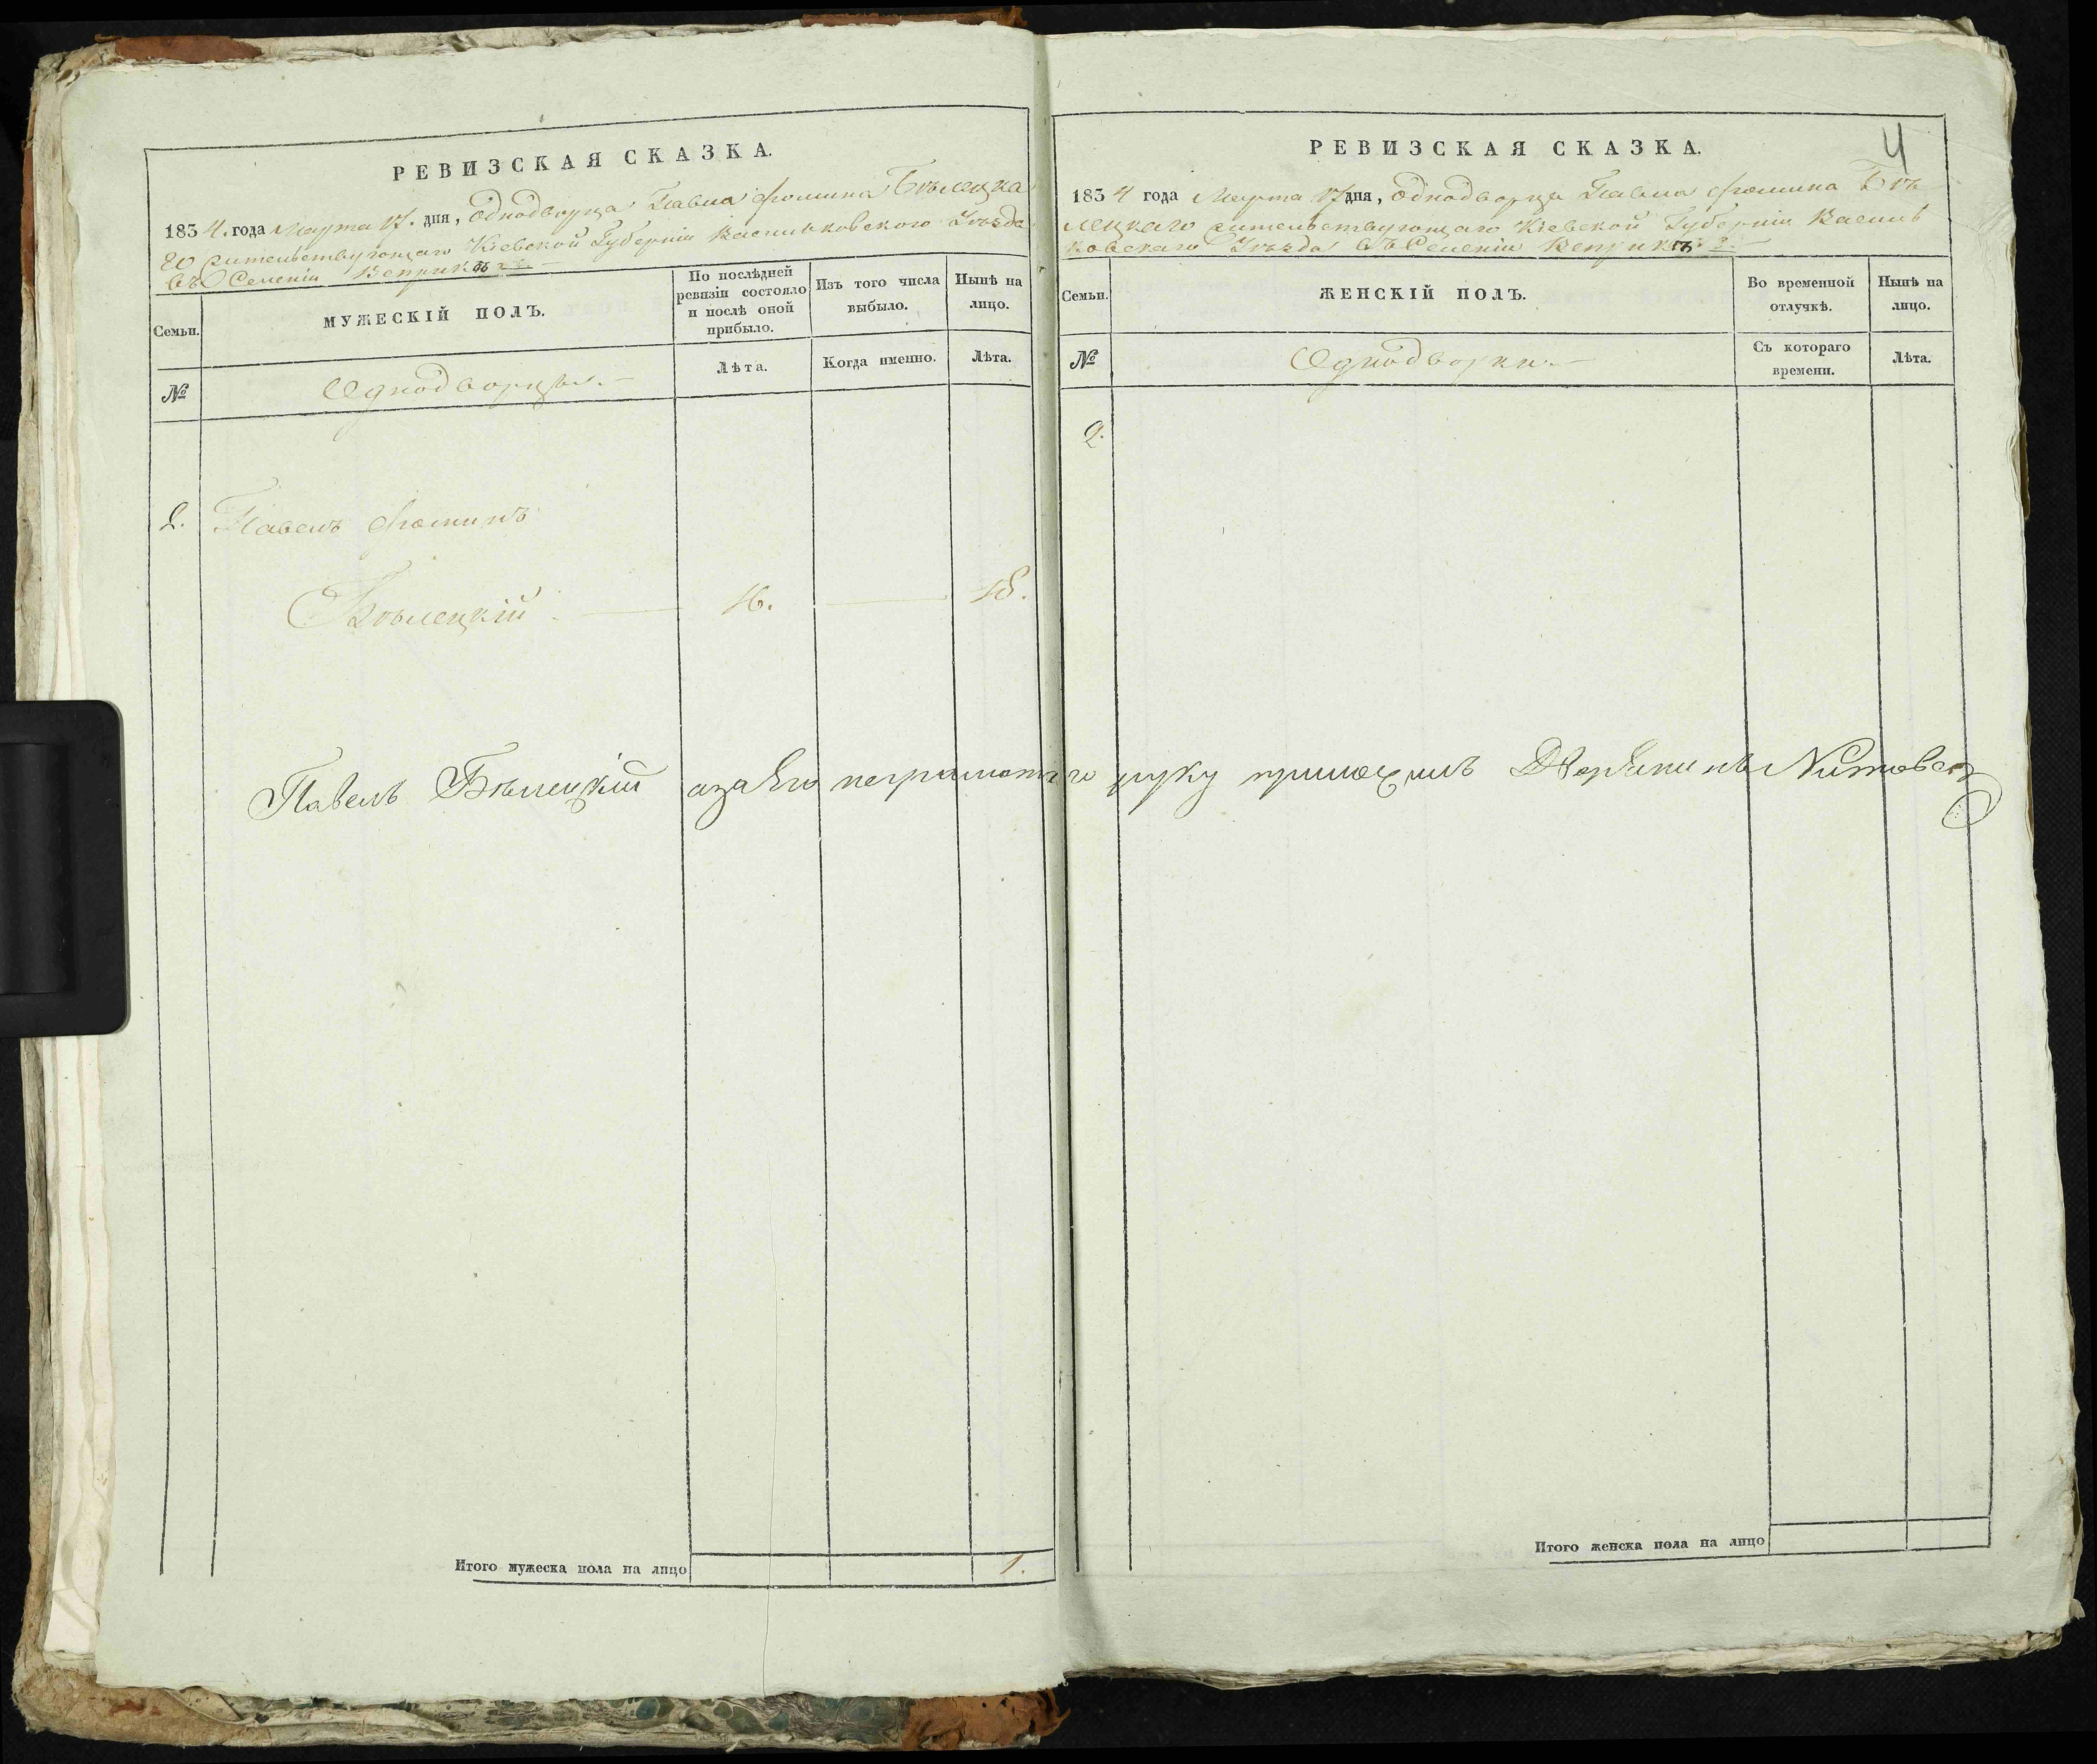 РЕВИЗСКАЯ СКАЗКА.
1834. года Марта 17. дня, Однодворца Павла Фомина Бѣлецка
го жительствующаго Кіевской Губерніи Васильковского Уѣзда
въ Селеніи Веприкѣ
Семьи.
МУЖЕСКІЙ ПОЛЪ.
По послѣдней
ревизіи состояло
и послѣ оной
прибыло.
Изъ того числа
выбыло.
Нынѣ на
лицо.
№
Однодворцы.
Лѣта.
Когда именно.
Лѣта.
2. Павелъ Фоминъ
Бѣлецкій 16. 18.
Итого мужеска пола на лицо 1.
4
РЕВИЗСКАЯ СКАЗКА.
1834 года Марта 17 дня, Однодворца Павла Фомина Бѣ
лецкаго жительствующаго Кіевской Губерніи Василь
ковскаго Уѣзда въ Селеніи Веприкѣ
Семьи.
ЖЕНСКІЙ ПОЛЪ.
Во временной
отлучкѣ.
Нынѣ на
лицо.
№
Однодворки.
Съ котораго
времени.
Лѣта.
2.
Павелъ Бѣлецкій а за его неграмотного руку приложилъ Дворянинъ
Итого женска пола на лицо